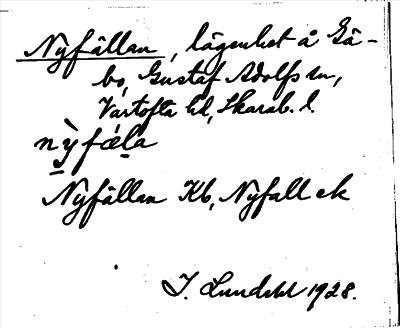 Nyfällan, lägenhet å Gä-
bo, Gustaf Adolfs sn,
Vartofta hd, Skarab. l.
nỳfǽla
Nyfällan Kb, Nyfall ek
J. Lundahl 1928.